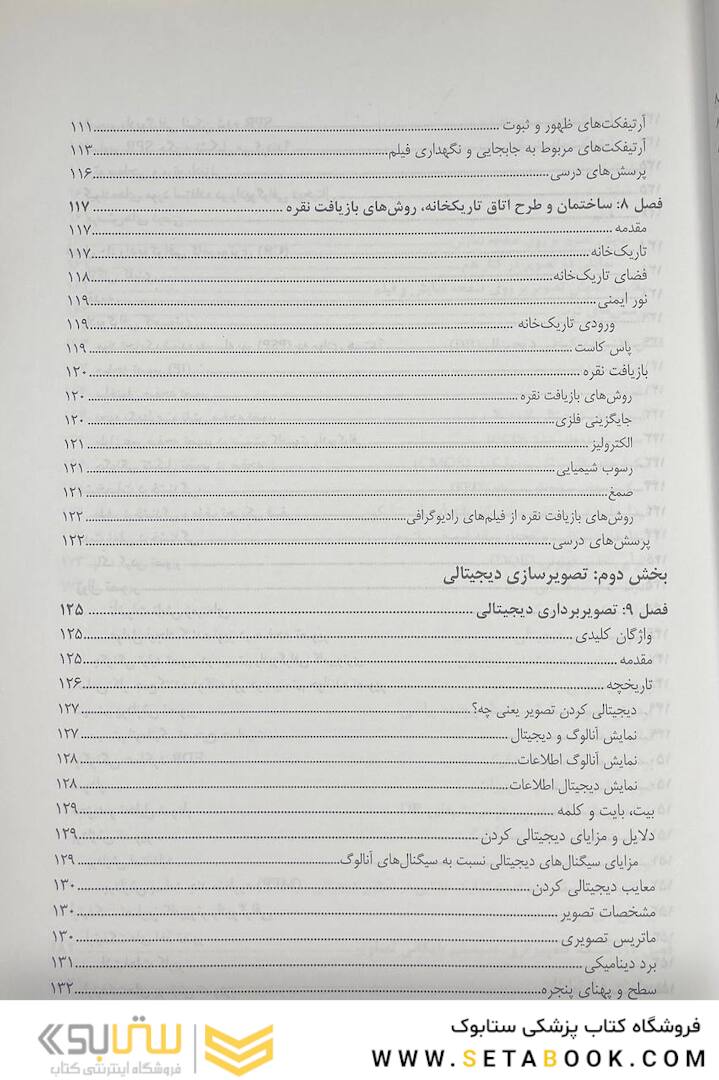 آرتیفکت‌های ظهور و ثبوت ........ ۱۱۱
آرتیفکت‌های مربوط به جابجایی و نگهداری فیلم ........ ۱۱۳
پرسش‌های درسی ........ ۱۱۶
فصل ۸: ساختمان و طرح اتاق تاریکخانه، روش‌های بازیافت نقره ........ ۱۱۷
مقدمه ........ ۱۱۷
تاریک‌خانه ........ ۱۱۷
فضای تاریک‌خانه ........ ۱۱۸
نور ایمنی ........ ۱۱۹
ورودی تاریک‌خانه ........ ۱۱۹
پاس کاست ........ ۱۱۹
بازیافت نقره ........ ۱۲۰
روش‌های بازیافت نقره ........ ۱۲۰
جایگزینی فلزی ........ ۱۲۰
الکترولیز ........ ۱۲۱
رسوب شیمیایی ........ ۱۲۱
صمغ ........ ۱۲۱
روش‌های بازیافت نقره از فیلم‌های رادیوگرافی ........ ۱۲۲
پرسش‌های درسی ........ ۱۲۲
بخش دوم: تصویرسازی دیجیتالی
فصل ۹: تصویربرداری دیجیتالی ........ ۱۲۵
واژگان کلیدی ........ ۱۲۵
مقدمه ........ ۱۲۵
تاریخچه ........ ۱۲۶
دیجیتالی کردن تصویر یعنی چه؟ ........ ۱۲۷
نمایش آنالوگ و دیجیتال ........ ۱۲۷
نمایش آنالوگ اطلاعات ........ ۱۲۸
نمایش دیجیتال اطلاعات ........ ۱۲۸
بیت، بایت و کلمه ........ ۱۲۹
دلایل و مزایای دیجیتالی کردن ........ ۱۲۹
مزایای سیگنال‌های دیجیتالی نسبت به سیگنال‌های آنالوگ ........ ۱۲۹
معایب دیجیتالی کردن ........ ۱۳۰
مشخصات تصویر ........ ۱۳۰
ماتریس تصویری ........ ۱۳۰
برد دینامیکی ........ ۱۳۱
سطح و پهنای پنجره ........ ۱۳۲
فروشگاه کتاب پزشکی ستابوک
WWW.SETABOOK.COM
ستابوک
فروشگاه اینترنتی کتاب